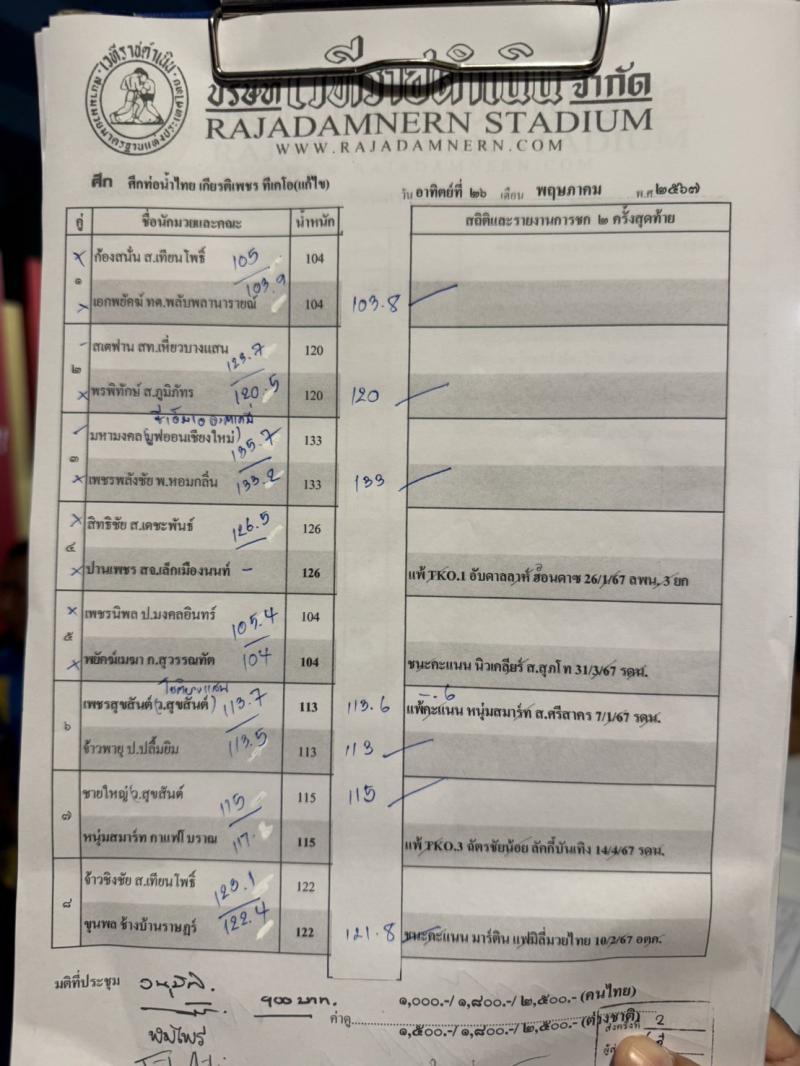 เวทีราชดำเนิน
บริษัท เวทีราชดำเนิน จำกัด
RAJADAMNERN STADIUM
WWW.RAJADAMNERN.COM
ศึก ศึกท่อน้ำไทย เกียรติเพชร ทีเคโอ(แก้ไข) วัน อาทิตย์ที่ ๒๖ เดือน พฤษภาคม พ.ศ ๒๕๖๗
คู่ ชื่อนักมวยและคณะ น้ำหนัก สถิติและรายงานการชก ๒ ครั้งสุดท้าย
ก้องสนั่น ส.เทียนโพธิ์ 105 104
๑ 103.9
เอกพยัคฆ์ ทศ.พลับพลานารายณ์ 104 103.8
สเตฟาน สท.เหี่ยวบางแสน 123.7 120
๒
พรพิทักษ์ ส.ภูมิภัทร 120.5 120 120
มหามงคล(มูฟออนเชียงใหม่) 135.7 133
๓
เพชรพลังชัย พ.หอมกลิ่น 133.2 133 133
สิทธิชัย ส.เดชะพันธ์ 126.5 126
๔
ปานเพชร สจ.เล็กเมืองนนท์ - 126 แพ้ TKO.1 อับดาลลาห์ ฮ๊อนดาซ 26/1/67 ลพน. 3 ยก
เพชรนิพล ป.มงคลอินทร์ 105.4 104
๕
พยัคฆ์เมฆา ก.สุวรรณทัต 104 104 ชนะคะแนน นิวเคลียร์ ส.สุภโท 31/3/67 รดน.
เพชรสุขสันต์(ว.สุขสันต์) 113.7 113 113.6 แพ้คะแนน หนุ่มสมาร์ท ส.ศรีสาคร 7/1/67 รดน.
๖
จ้าวพายุ ป.ปลื้มยิม 113.5 113 113
ชายใหญ่ ว.สุขสันต์ 115 115 115
๗
หนุ่มสมาร์ท กาแฟโบราณ 117. 115 แพ้ TKO.3 ฉัตรชัยน้อย ลักกี้บันเทิง 14/4/67 รดน.
จ้าวชิงชัย ส.เทียนโพธิ์ 123.1 122
๘
ขุนพล ช้างบ้านราษฎร์ 122.4 122 121.8 ชนะคะแนน มาร์ติน แฟมิลี่มวยไทย 10/2/67 อตก.
มติที่ประชุม อนุมัติ.
๑,๐๐๐.-/ ๑,๘๐๐.-/ ๒,๕๐๐.- (คนไทย)
๙๐๐ บาท. ค่าดู
๑,๕๐๐.-/ ๑,๘๐๐.-/ ๒,๕๐๐.- (ต่างชาติ)
พิมไพรี
ส่งครั้งที่ 2